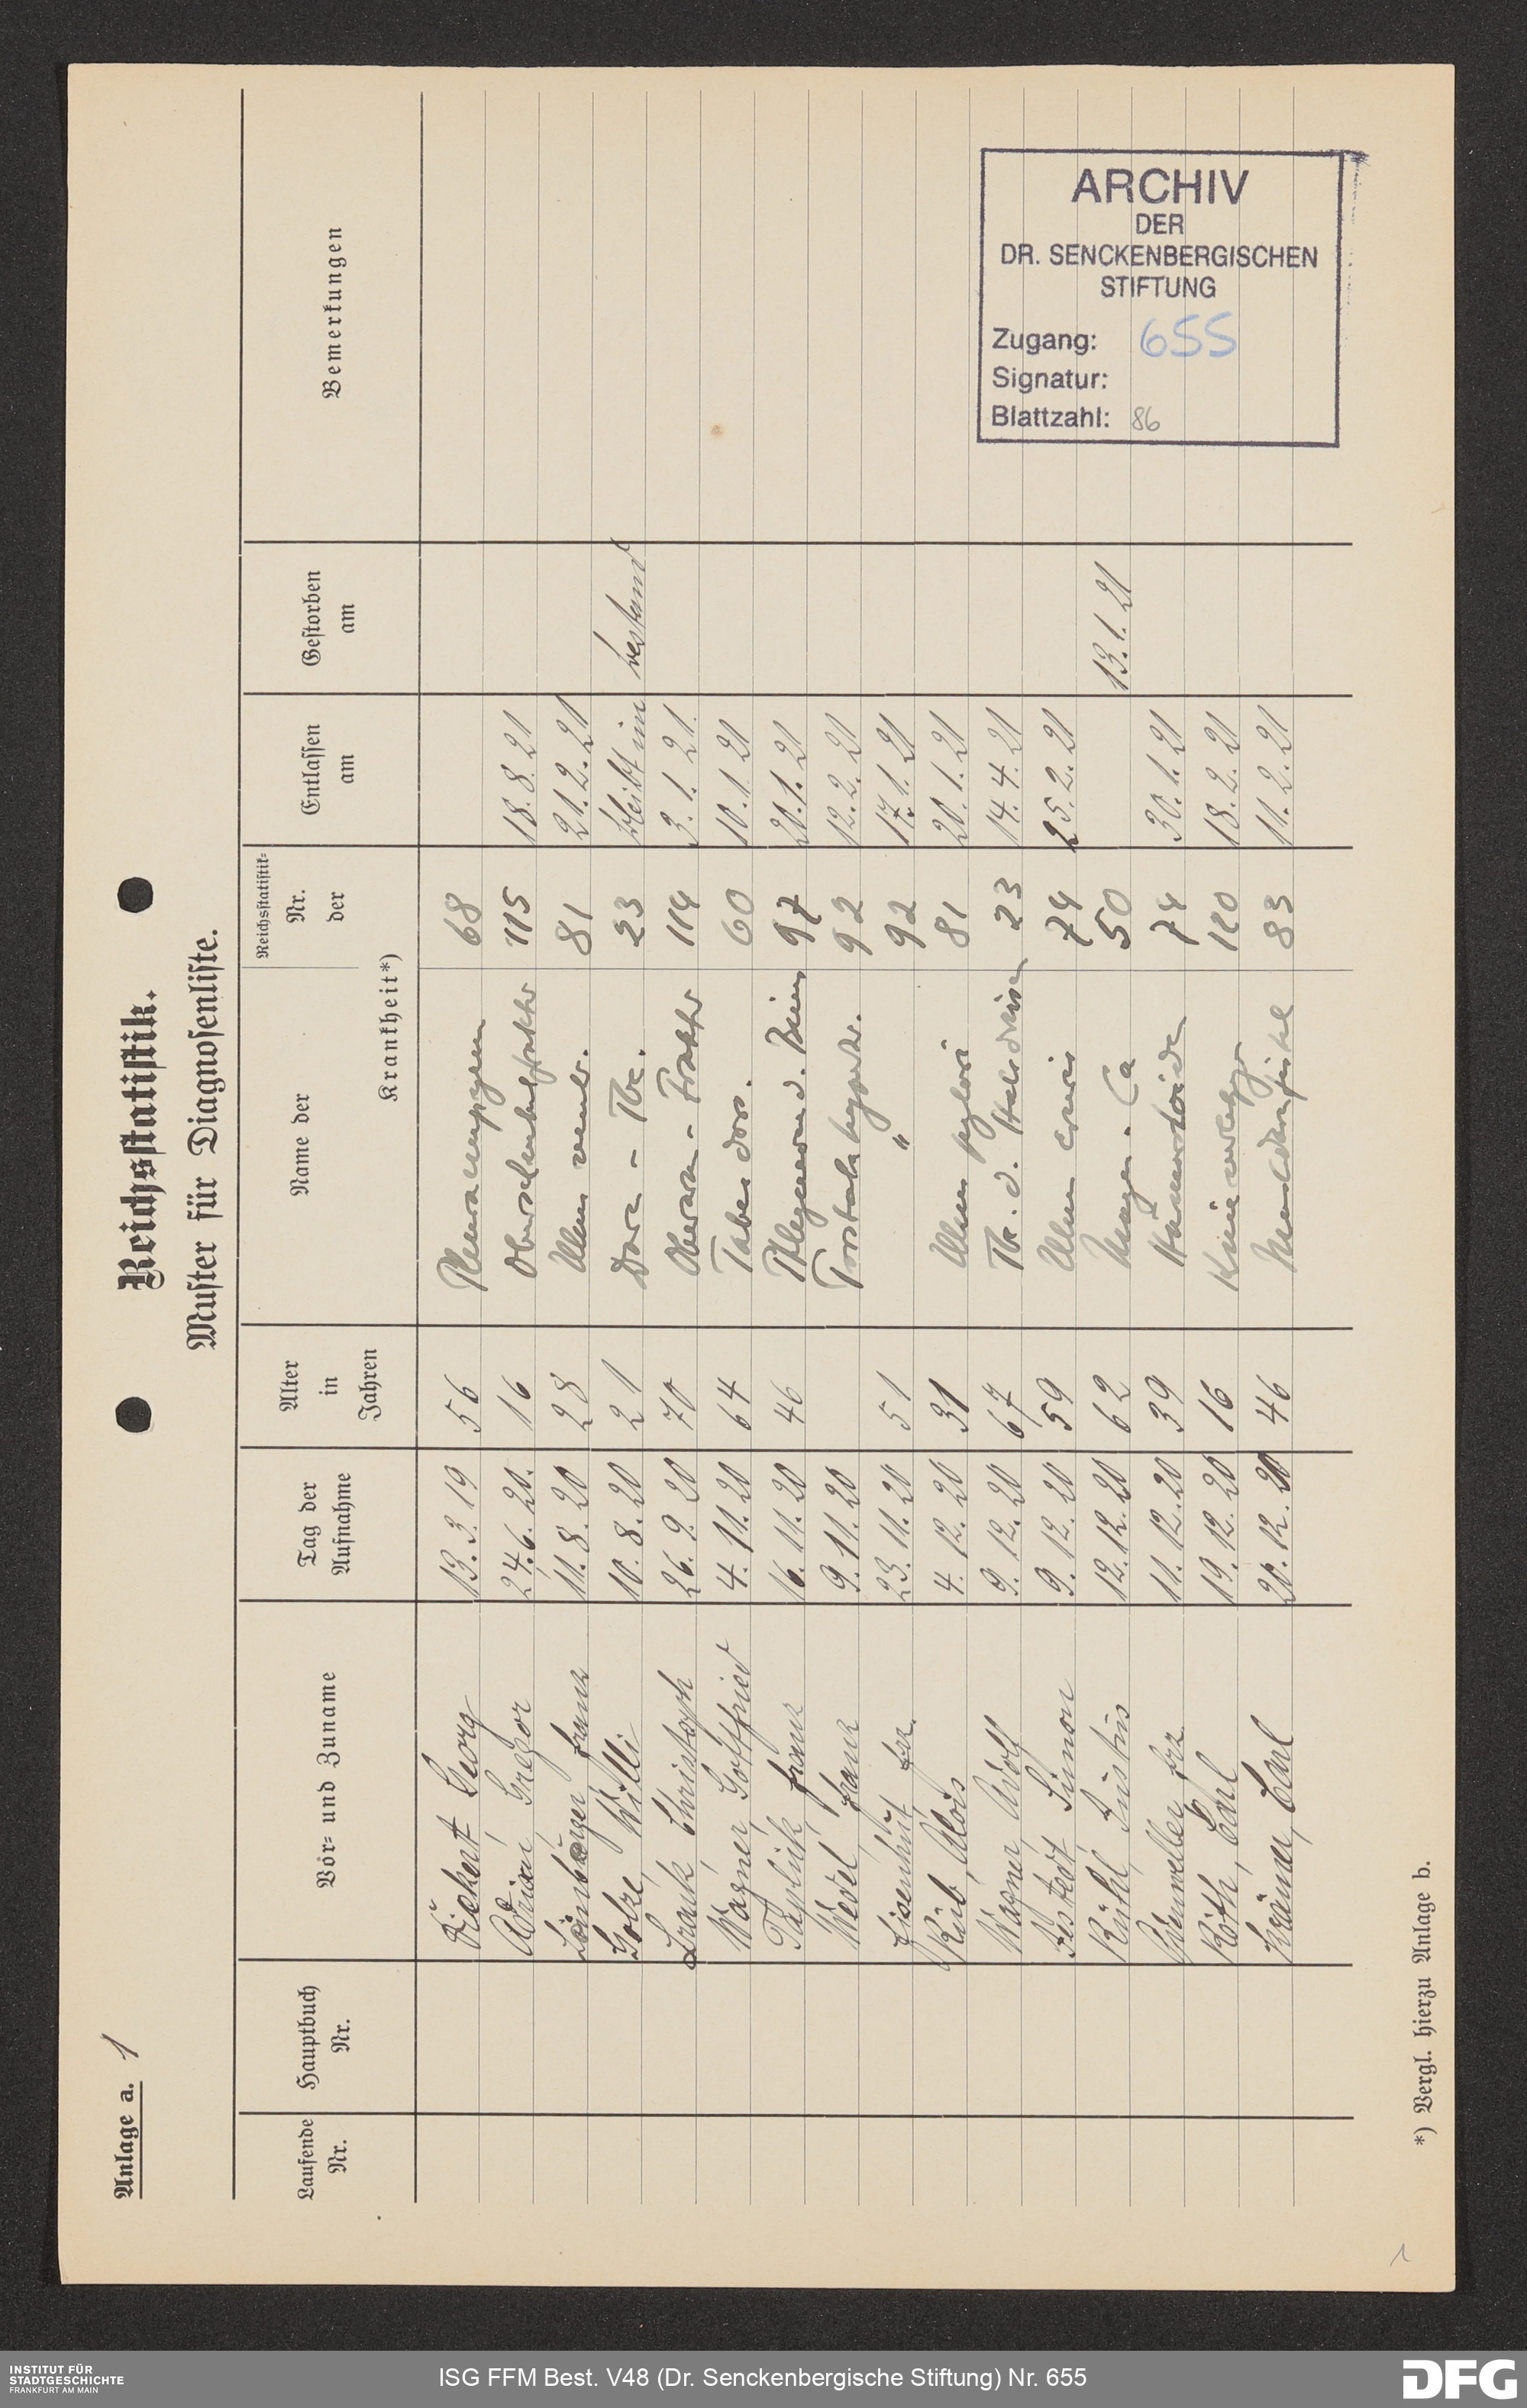 Anlage a. 1
Reichsstatistik.
Muster für Diagnosenliste.
Laufende Nr. Hauptbuch Nr. Vor- und Zuname Tag der Aufnahme Alter in Jahren Name der Krankheit*) Reichsstatistik- Nr. der Entlassen am Gestorben am Bemerkungen
Georg 13.3.19 56 Pleuraempyem 68
Adrian Gregor 24.6.20. 16 115 18.8.21
Franz 11.8.20 28 Ulcus ventr. 81 21.2.21
Golze, Willi 10.8.20 21 Darm - Tbc. 23 bleibt im bestand
Frank, Christoph 26.9.20 70 Oberarm - Fraktur 114 3.1.21.
Wagner, Gottfried 4.11.20 64 Tabes dors. 60 10.1.21
Franz 16.11.20 46 Phlegmone d. Beins 97 20.1.21
Wedel, Franz 9.11.20 92 12.2.21
Eisenhut, Fr. 23.11.20 51 " 92 17.1.21
Rüb, Alois 4.12.20 31 Ulcus pylori 81 20.1.21
Wagner, Adolf 9.12.20 67 Tbc. d. Halsdrüsen 23 14.4.21
Simon 9.12.20 59 Ulcus cruris 74 25.2.21
Rühl, Justus 12.12.20 62 Magen - Ca 50 13.1.21
11.12.20 39 Hämorrhoiden 74 30.1.21
Roth, Carl 19.12.20 16 120 18.2.21
Krämer, Carl 20.12.20 46 Mastdarmfistel 83 11.2.21
*) Vergl. hierzu Anlage b.
ARCHIV
DER
DR. SENCKENBERGISCHEN
STIFTUNG
Zugang: 655
Signatur:
Blattzahl: 86
1
INSTITUT FÜR
STADTGESCHICHTE
FRANKFURT AM MAIN
ISG FFM Best. V48 (Dr. Senckenbergische Stiftung) Nr. 655
DFG